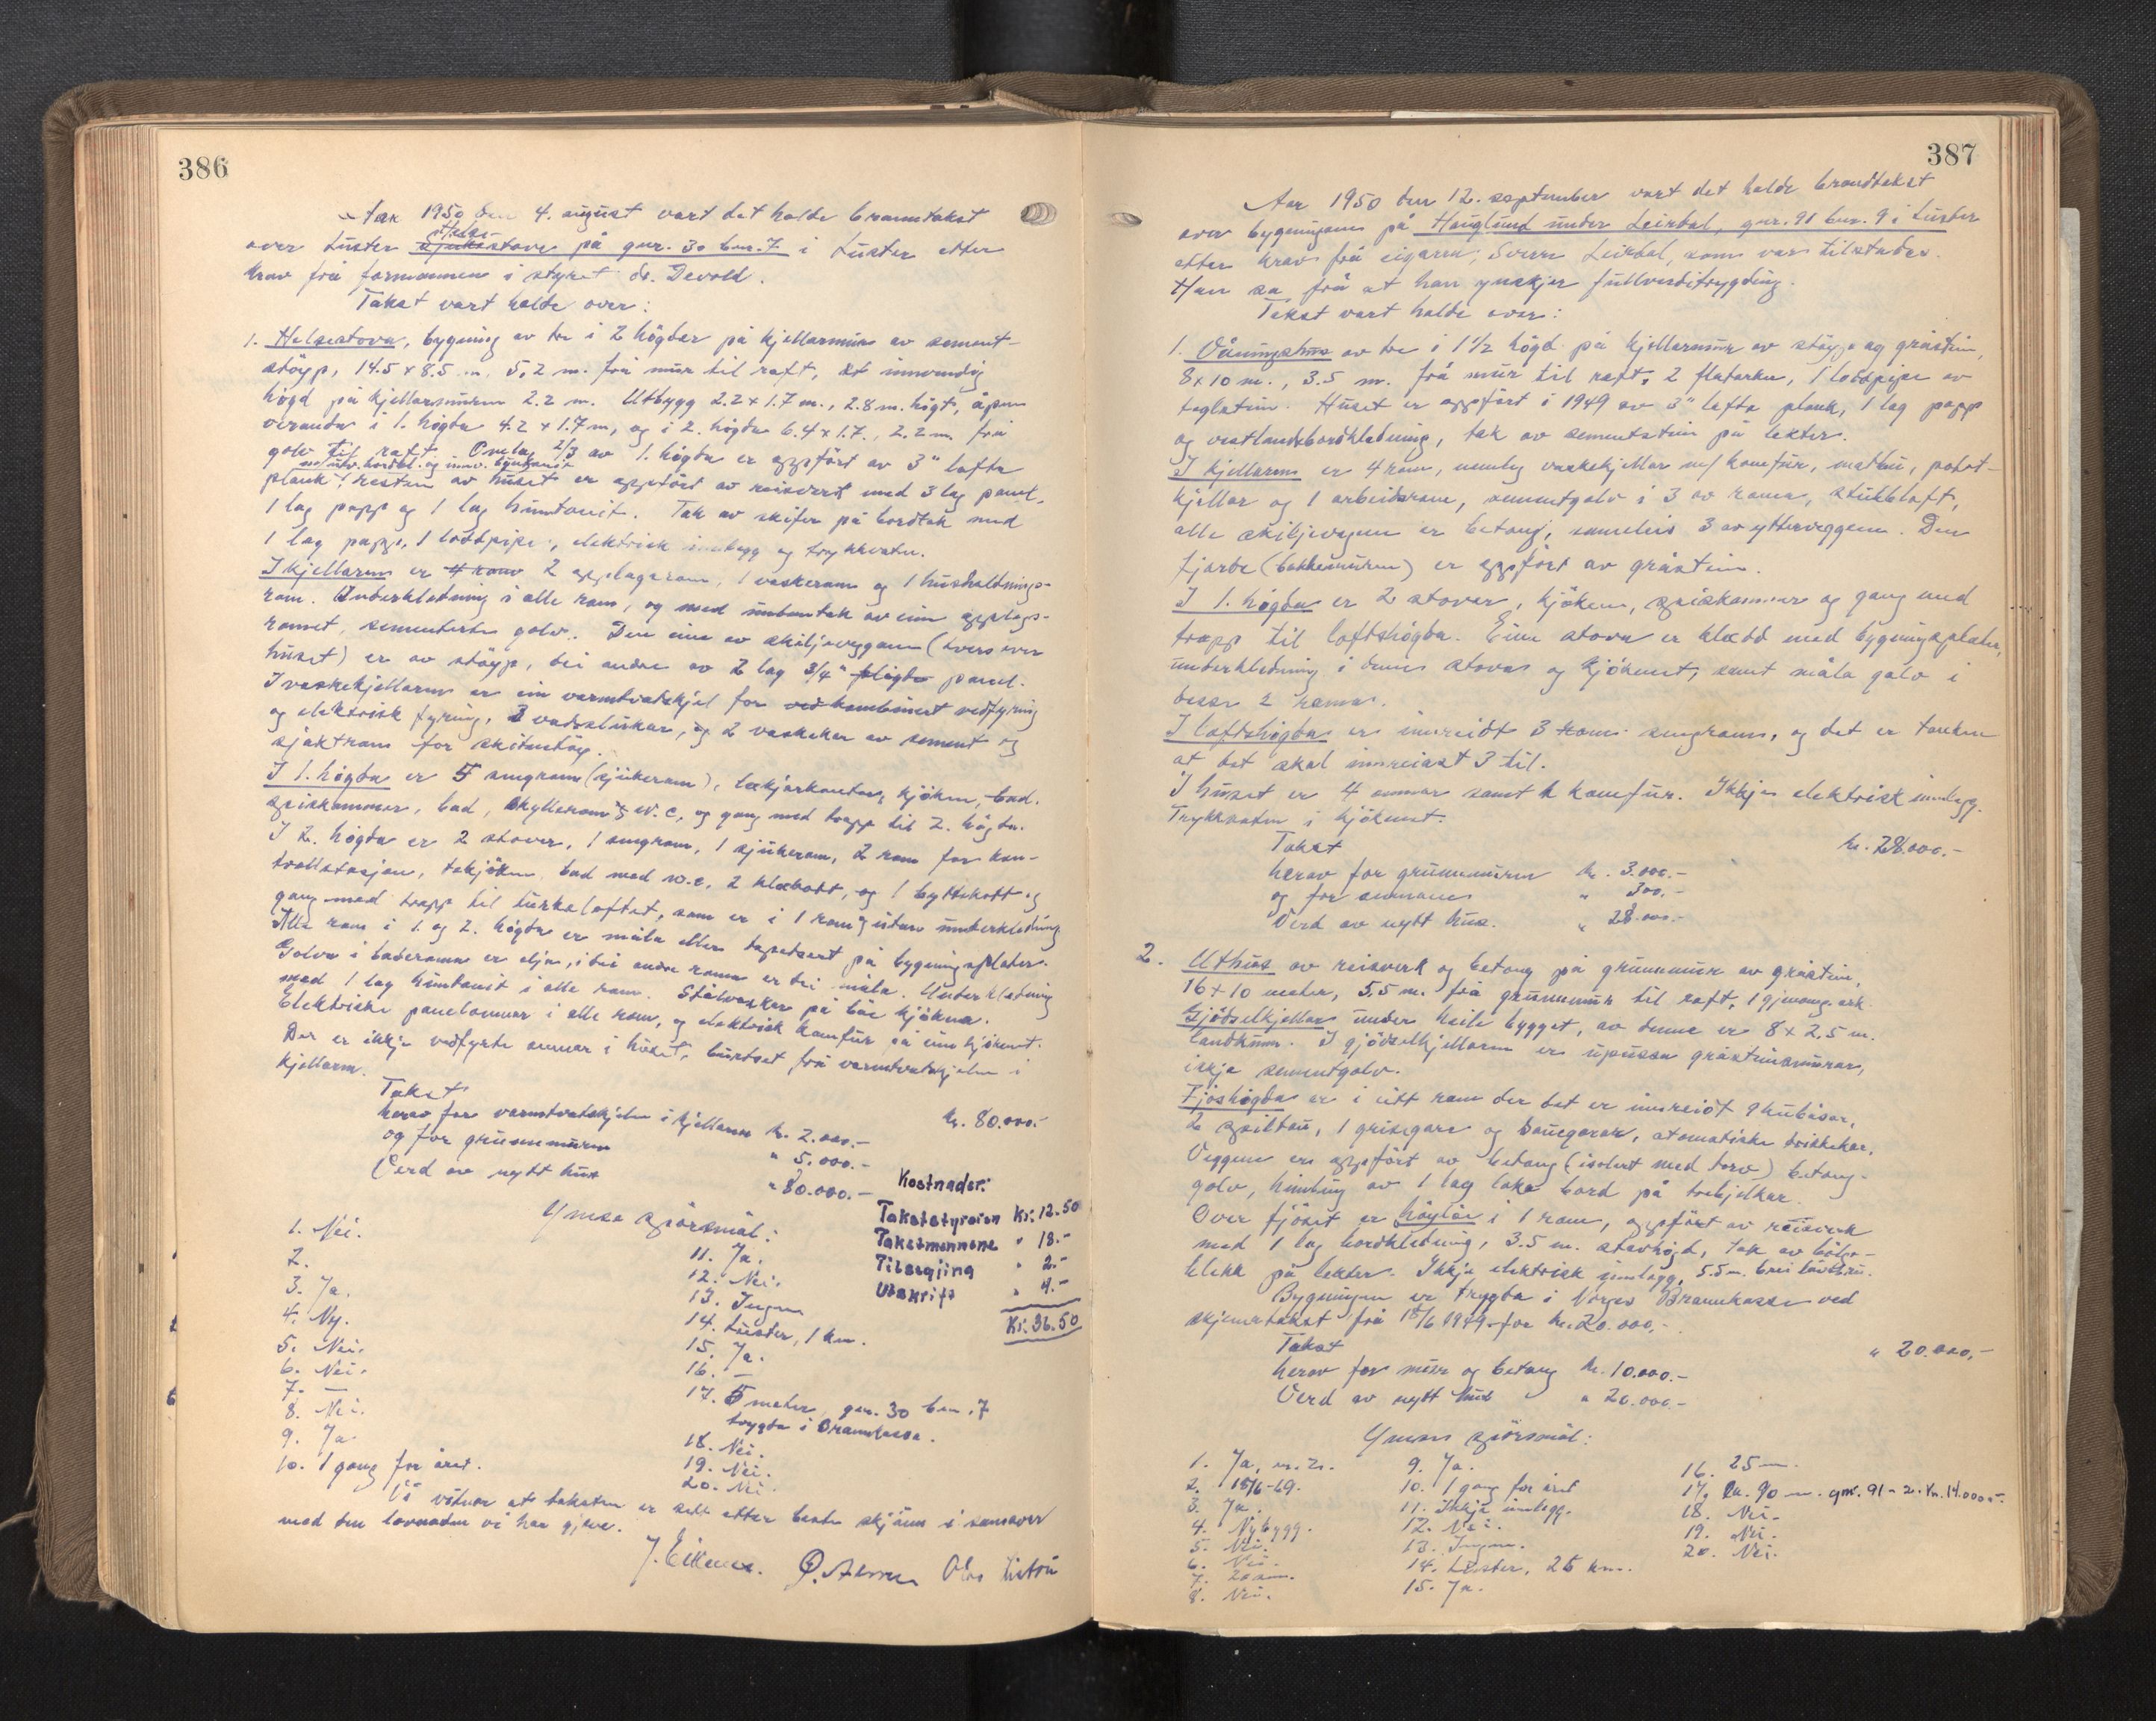 386
År 1950 den 4. august vart det halde branntakst
over Luster Helse-
sjukestove på gnr. 30 bnr. 7 i Luster etter
krav frå formannen i styret dr. Devold.
Takst vart halde over:
1. Helsestova, bygning av tre i 2 högder på kjellarmur av sement-
støyp, 14.5 x 8.5 m, 5,2 m. frå mur til raft, innvendig
högd på kjellarmuren 2.2 m. Utbygg 2.2 x 1.7 m., 2.8 m. högt, åpen
veranda i 1. högda 4.2 x 1.7 m, og i 2. högda 6.4 x 1.7., 2.2 m. frå
golv til raft. Omlag 2/3 av 1. högda er oppfört av 3" lafta
m/utv. bordkl. og innv.
plank, resten av huset er oppfört av reisverk med 3 lag panel,
1 lag papp og 1 lag huntonit. Tak av skifer på bordtak med
1 lag papp, 1 loddpipe, elektrisk innlegg og trykkvatn.
I kjellaren er 4 rom 2 opplagsrom, 1 vaskerom og 1 husholdnings-
rom. Underkledning i alle rom, og med undantak av eine opplags-
romet, sementerte golv. Den eine av skiljeveggane (tvers over
huset) er av støyp, dei andre av 2 lag 3/4" pløgde panel.
I vaskekjellaren er ein varmtvatskjel for ved kombinert vedfyring
og elektrisk fyring, 2 vadskslukar, og 2 vaskekar av sement og
sjaktrom for skitentøy.
I 1. högda er 5 sengrom (sjukerom), lækjarkontor, kjöken, bad,
spiskammer, bad, skyllerom, W.C, og gang med trapp til 2. högda.
I 2. högda er 2 stover, 1 sengrom, 1 sjukerom, 2 rom for kon-
trollstasjon, tekjöken, bad med w.c, 2 klekott, og 1 byttekott og
gang med trapp til turkeloftet, som er i 1 rom utan underkledning
Alle rom i 1. og 2. högda er måla eller tapetsert på bygningsplater.
Golva i baderoma er elja, i dei andre roma er dei måla. Underkledning
med 1 lag huntonit i alle rom. Stålvaskar på båe kjökna.
Elektriske panelomnar i alle rom, og elektrisk komfur på eine kjökenet.
Der er ikkje vedfyrte omnar i huset, burtset frå varmtvatskjelen i
kjellaren.
Takst kr. 80.000.-
herav for varmtvatskjelen i kjellaren kr. 2.000.-
og for grunnmuren " 5.000.-
Verd av nytt hus " 80.000.-
Kostnader:
Takststyraren Kr. 12.50
Takstmennene " 18.-
Tilseging " 2.-
Utskrift " 4.-
Kr. 36.50
Ymse spörsmål:
1. Nei.
2.
3. Ja.
4. Ny.
5. Nei.
6. Nei.
7. —
8. Nei.
9. Ja
10. 1 gang for året.
11. Ja.
12. Nei.
13. Ingen
14. Luster, 1 km.
15. Ja.
16. —
17. 5 meter, gnr. 30 bnr. 7
trygda i Brannkassa.
18. Nei.
19. Nei.
20. Nei.
Vi vitnar at taksten er sett etter beste skjönn i samsvar
med den lovnaden vi har gjeve.
387
Aar 1950 den 12. september vart det halde brandtakst
over bygningane på Hauglund under Leirdal, gnr. 91 bnr. 9 i Luster
etter krav frå eigaren, Sverre Leirdal, som var tilstades.
Han sa frå at han ynskjer fullverditrygding.
Takst vart halde over:
1. Våningshus av tre i 1 1/2 högd på kjellarmur av støyp og gråstein,
8 x 10 m., 3.5 m. frå mur til raft, 2 flatarker, 1 loddpipe av
teglstein. Huset er oppfört i 1949 av 3" lafta plank, 1 lag papp
og vestlandsbordkledning, tak av sementstein på lekter.
I kjellaren er 4 rom, nemleg vaskekjellar m/ komfur, matbu, potet-
kjellar og 1 arbeidsrom, sementgolv i 3 av roma, stubbloft,
alle skiljevegger er betong, sameleis 3 av ytterveggene. Den
fjorde (bakkemuren) er oppfört av gråstein.
I 1. högda er 2 stover, kjöken, spiskammer og gang med
trapp til loftshögda. Eine stova er kledd med bygningsplater,
underkledning i denne stova og kjökenet, samt måla golv i
desse 2 roma.
I loftshögda er innreidt 3 rom sengrom, og det er tanken
at det skal innreiast 3 til.
I huset er 4 omnar samt 1 komfur. Ikkje elektrisk innlegg.
Trykkvatn i kjökenet.
Takst kr. 28.000.-
herav for grunnmuren kr. 3.000.-
og for omnane " 300.-
Verd av nytt hus. " 28.000.-
2. Uthus av reisverk og betong på grunnmur av gråstein,
16 x 10 meter, 5,5 m. frå grunnmur til raft, 1 gjennomg. ark.
Gjödselkjellar under heile bygget, av denne er 8 x 2,5 m.
landkum. I gjödselkjellaren er upussa gråsteinsmurar,
ikkje sementgolv.
Fjöshögda er i eitt rom der det er innreidt 9 kubåsar,
2 geiltau, 1 grisegare og sauegarar, atomatiske drikkekar.
Veggene er oppfört av betong (isolert med torv) betong-
golv, himling av 1 lag laka bord på trebjelkar.
Over fjöset er höyloe i 1 rom, oppfört av reisverk
med 1 lag bordkledning, 3.5 m. stavhögd, tak av bölge-
blekk på lekter. Ikkje elektrisk innlegg, 5.5 m. brei låvebru.
Bygningen er trygda i Norges Brannkasse ved
skjemetakst frå 18/6 1949 for kr. 20.000,-
Takst " 20.000,-
herav for mur og betong kr. 10.000.-
Verd av nytt hus " 20.000.-
Ymse spörsmål:
1. Ja, nr. 2.
2. 18/6-49.
3. Ja.
4. Nybygg.
5. Nei.
6. Nei.
7.
8. Nei.
9. Ja.
10. 1 gang for året
11. Ikkje innlegg.
12. Nei.
13. Ingen.
14. Luster, 25 km.
15. Ja.
16. 25 m.
17. Ca. 90 m. gnr. 91 - 2. Kr. 14.000.-
18. Nei.
19. Nei.
20. Nei.